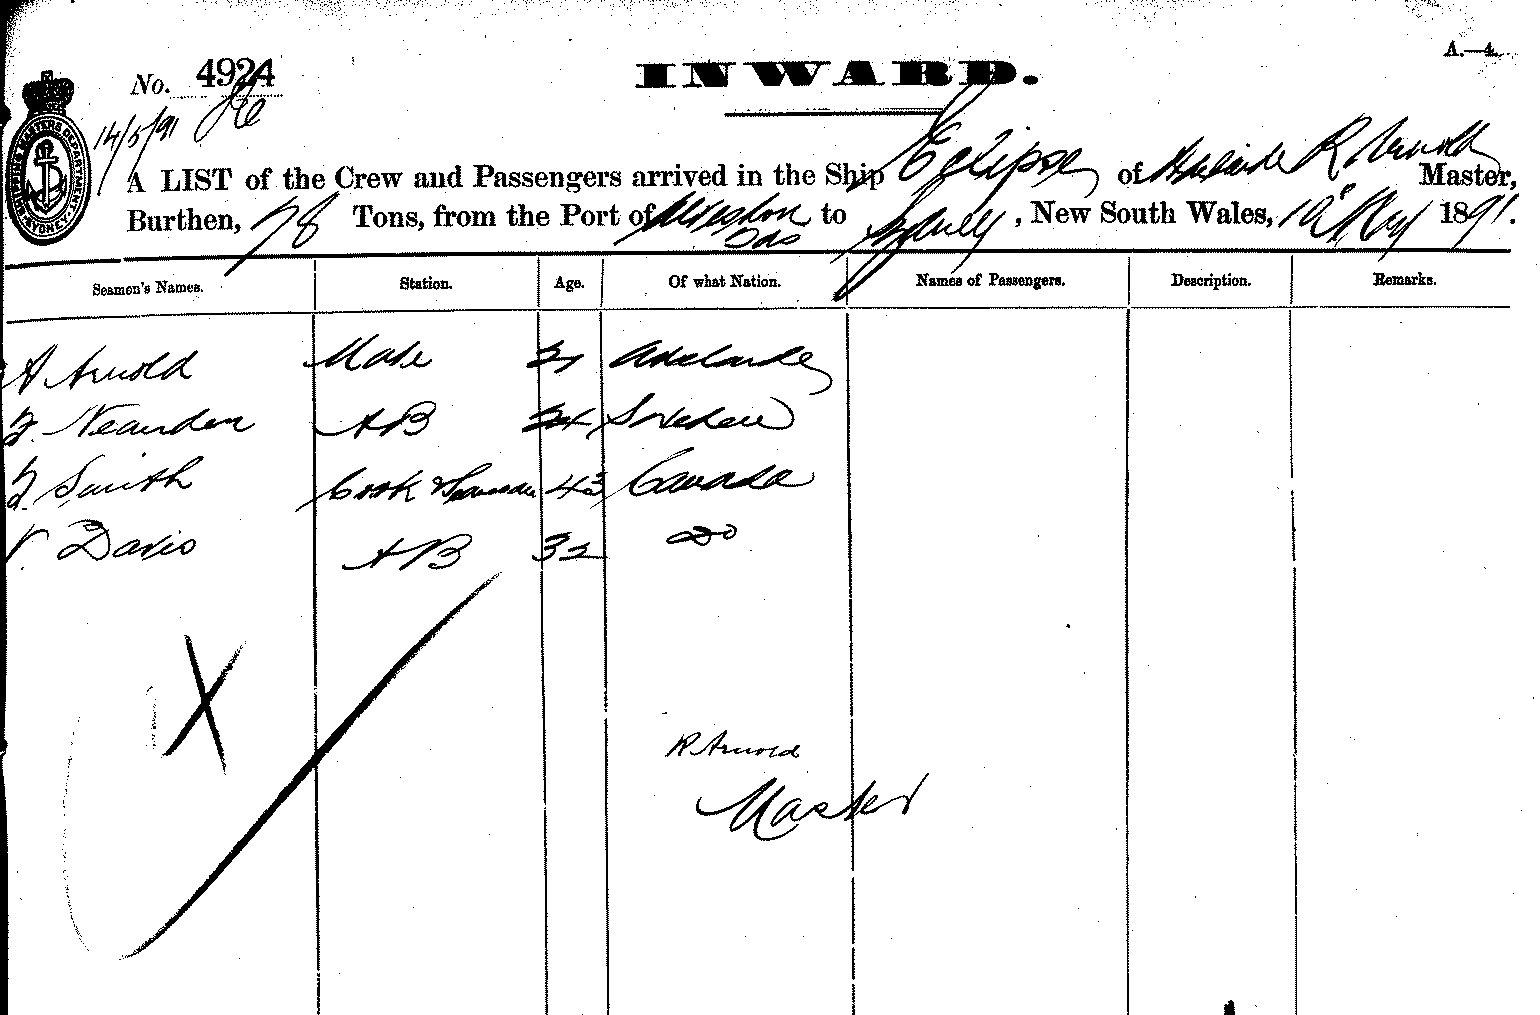 A.—4.
No. 4924
INWARD.
14/5/91
A LIST of the Crew and Passengers arrived in the Ship Eclipse of Adelaide R Arnold Master,
Burthen, 78 Tons, from the Port of Ulverston Tas to Sydney, New South Wales, May 1891.
Seamen's Names. Station. Age. Of what Nation. Names of Passengers. Description. Remarks.
A Arnold Mate 21 Adelaide
AB 24 Sweden
Smith Cook & Seaman 43 Canada
Davis AB 32 Do
R Arnold
Master